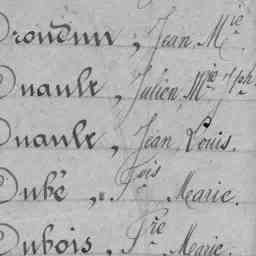 Drouëdun, Jean Mie
Duault, Julien Mie Jph
Duault, Jean Louis.
Dubé, Fois Marie.
Dubois, Pre Marie.